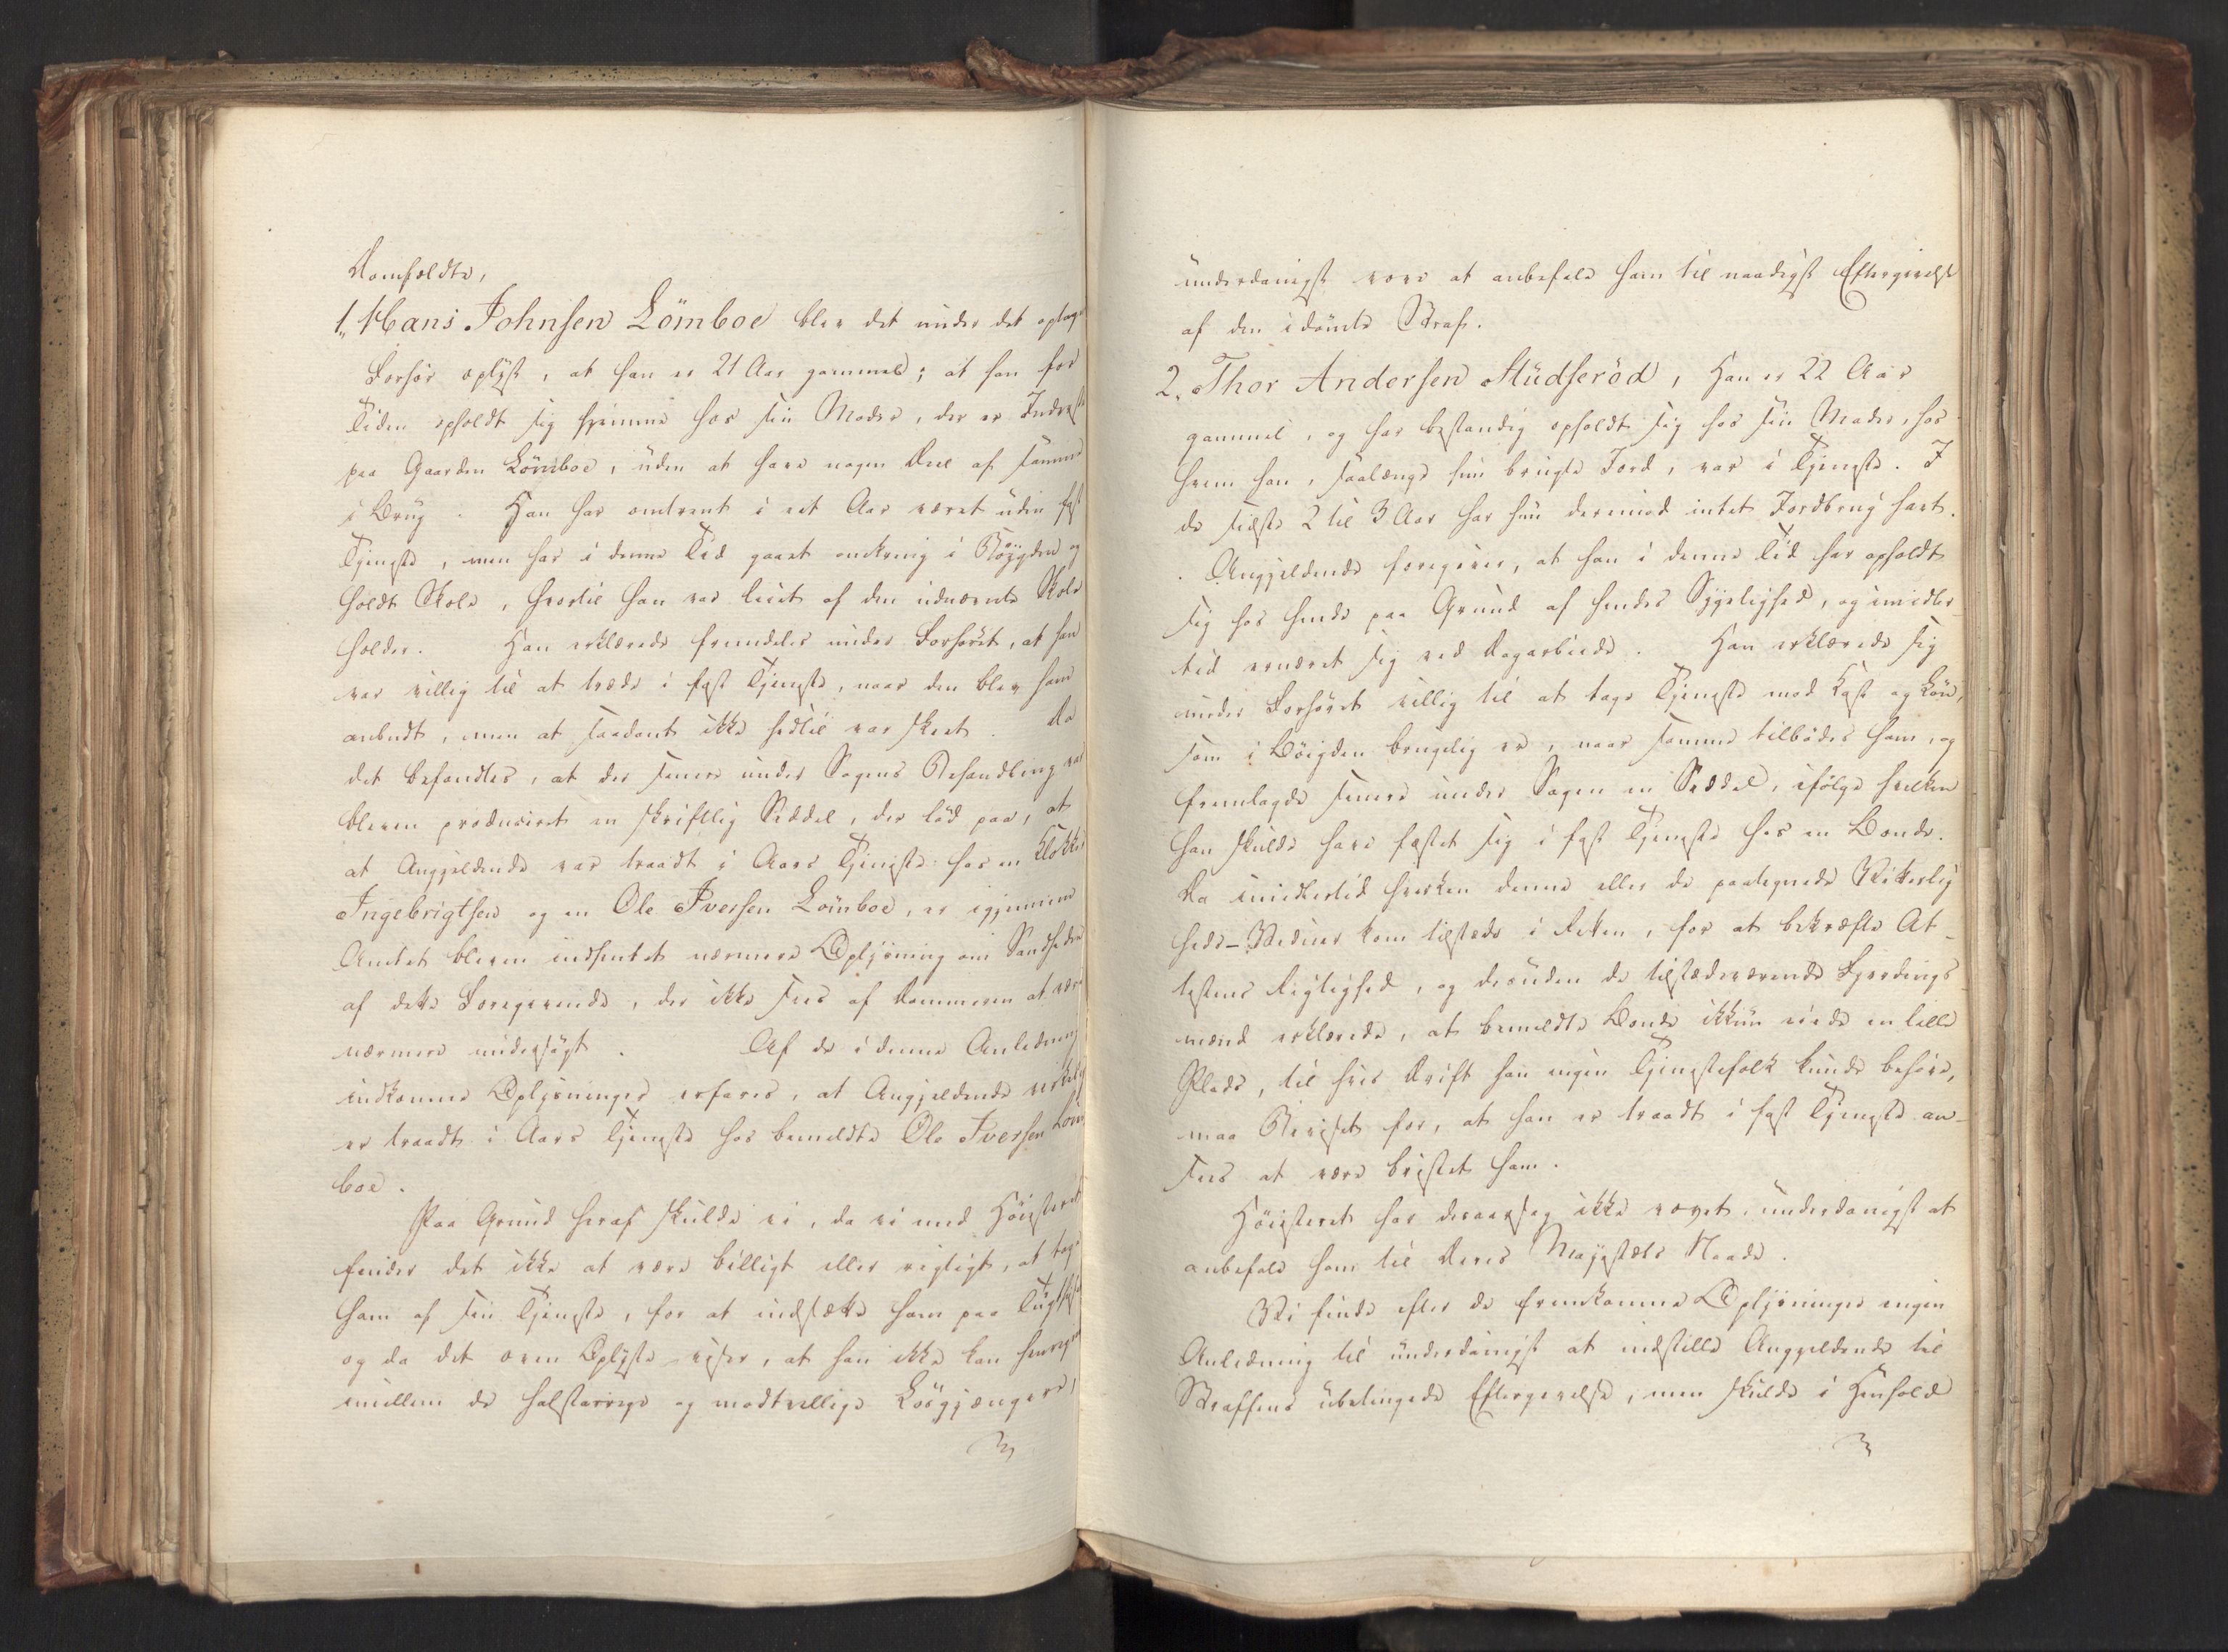 Domfældte,
1., Hans Johnsen Lömboe blev det under det optagne
Forhör oplyst, at han er 21 Aar gammel; at han for
Tiden opholdt sig hjemme hos sin Moder, der er Inderst
paa Gaarden Lömboe, uden at have nogen Deel af samme
i Brug. Han har omtrent i eet Aar været uden fast
Tjeneste, men har i denne Tid gaaet omkring i Böygden og
holdt Skole, hvortil han var leiet af den udnævnte Skole
holder. Han erklærede fremdeles under Forhöret, at han
var villig til at træde i fast Tjeneste, naar den blev ham
anbudt, men at saadant ikke hidtil var skeet. Da
det befandtes, at der senere under Sagens Behandling var
bleven produceret en skriftlig Seddel, der löd paa, at
at Angjeldende var traadt i Aars Tjeneste hos en Klokker
Ingebrigtsen og en Ole Iversen Lömboe, er igjennem
Amtet bleven indhentet nærmere Oplysning om Sandheden
af dette Foregivende, der ikke sees af Dommeren at være
nærmere undersögt. Af de i denne Anledning
indkomne Oplysninger erfares, at Angjeldende virkelig
er traadt i Aars Tjeneste hos bemeldte Ole Iversen Löm
boe.
Paa Grund heraf skulde vi, da vi med Höiesteret
finder det ikke at være billigt eller rigtigt, at tage
ham af sin Tjeneste, for at indsætte ham paa Tugthuset
og da det oven Oplyste viser, at han ikke kan henregnes
imellem de halstarrige og modtvillige Lösgjængere,
underdanigst vove at anbefale ham til naadigst Eftergivelse
af den idömte Straf.
2. Thor Andersen Studseröd, Han er 22 Aar
gammel, og har bestandig opholdt sig hos sin Moder, hos
hvem han, saalænge hun brugte Jord, var i Tjeneste. I
de sidste 2 til 3 Aar har hun derimod intet Jordbrug havt.
Angjeldende foregiver, at han i denne Tid har opholdt
sig hos hende paa Grund af hendes Sygelighed, og imidler-
tid ernæret sig ved Dagarbeide. Han erklærede sig
under Forhöret villig til at tage Tjeneste mod Kost og Lön,
som i Böigden brugelig er, naar samme tilbödes ham, og
fremlagde senere under Sagen en Seddel, ifölge hvilken
han skulde have fæstet sig i fast Tjeneste hos en Bonde.
Da imidlertid hverken denne eller de paategnede Vitterlig
heds-Vidner kom tilstæde i Retten, for at bekræfte At-
testens Rigtighed, og desuden de tilstædeværende Fjerdings-
mænd erklærede, at bemeldte Bonde ikkun eiede en lille
Plads, til hvis Drift han ingen Tjenestefolk kunde behöve,
maa Beviset for, at han er traadt i fast Tjeneste an-
sees at være bristet ham.
Höiesteret har desaarsag ikke vovet, underdanigst at
anbefale ham til Deres Majestæts Naade.
Vi finde efter de fremkomne Oplysninger ingen
Anledning til underdanigst at indstille Angjeldende til
Straffens ubetingede Eftergivelse, men skulde i Henhold